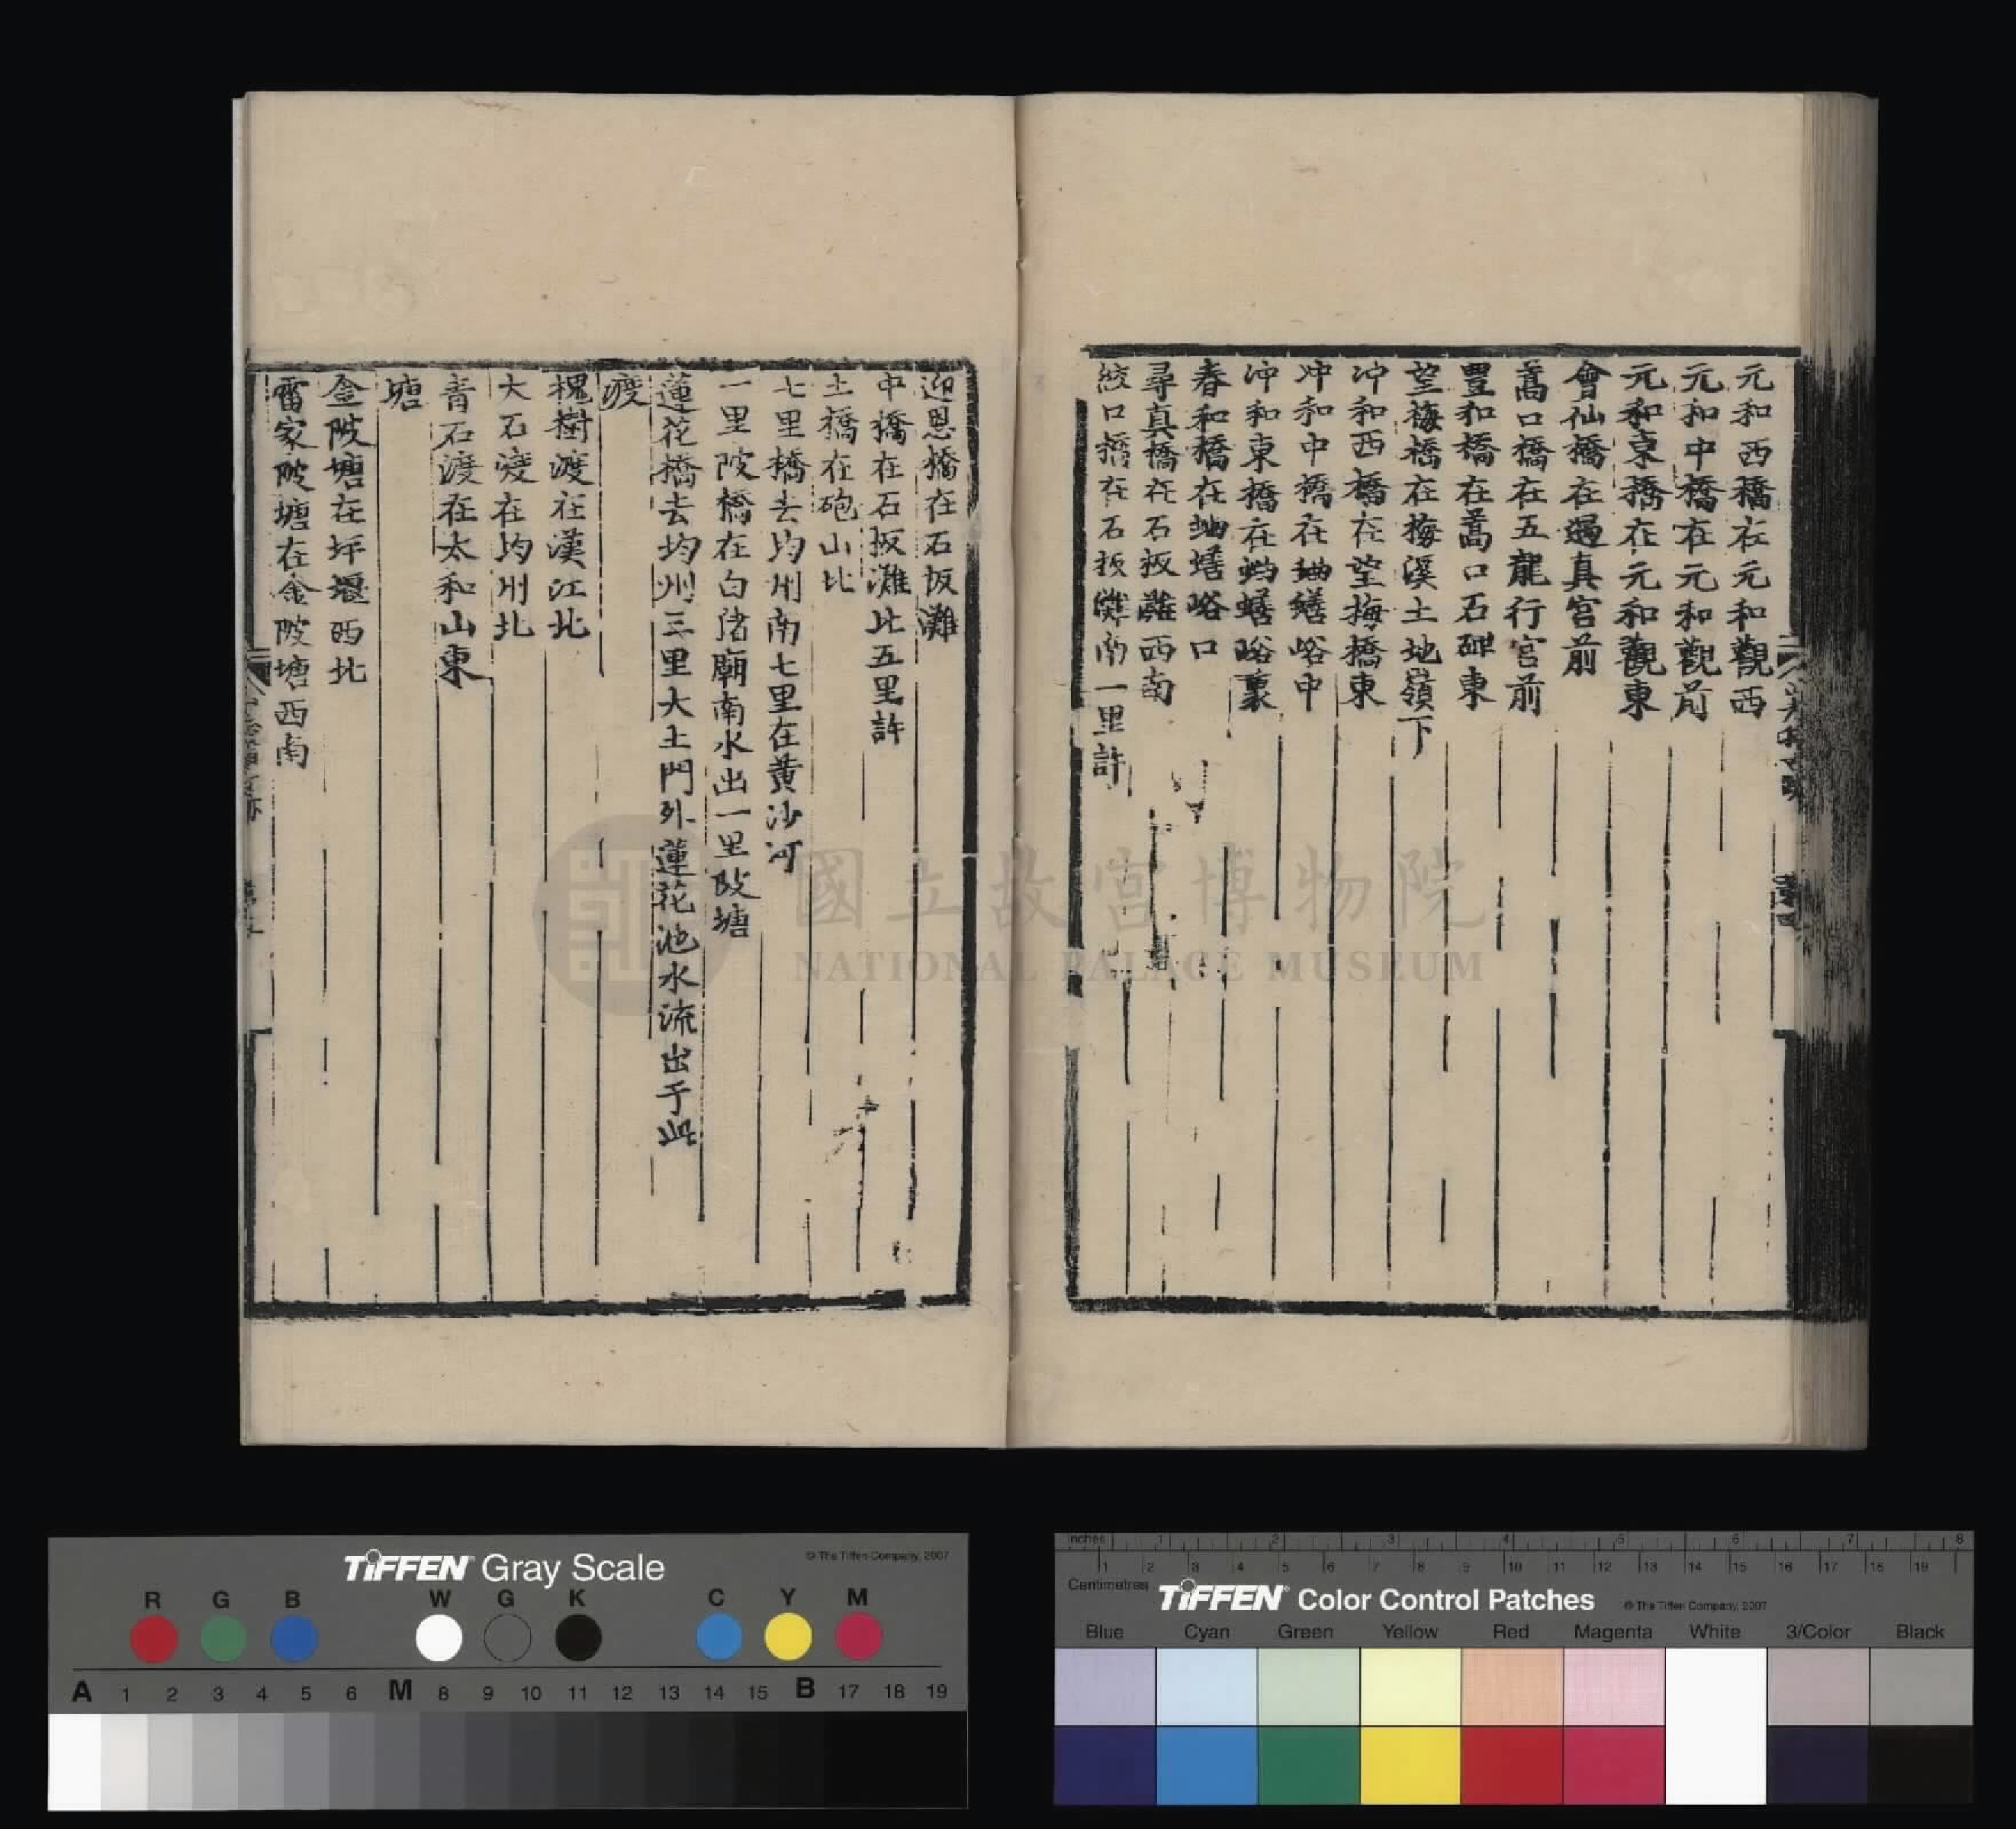 元和西橋在元和觀西
元和中橋在元和觀前
元和東橋在元和觀東
會仙橋在遇真宮前
蒿口橋在五龍行宮前
豐和橋在蒿口石碑東
望梅橋在梅溪土地嶺下
冲和西橋在望梅橋東
冲和中橋在蚰蟮峪中
冲和東橋在蚰蟮峪裏
春和橋在蚰蟮峪口
尋真橋在石板灘西南
絞口橋在石板灘南一里許
迎恩橋在石板灘
中橋在石板灘北五里許
土橋在砲山北
七里橋去均州南七里在黄沙河
一里陂橋在白渚廟南水出一里陂塘
蓮花橋去均州三里大土門外蓮花池水流出于此
渡
槐樹渡在漢江北
大石渡在均州北
青石渡在太和山東
塘
金陂塘在坪堰西北
雷家陂塘在金陂塘西南
國立故宮博物院
NATIONAL PALACE MUSEUM
TIFFEN Gray Scale
© The Tiffen Company, 2007
R G B W G K C Y M
A 1 2 3 4 5 6 M 8 9 10 11 12 13 14 15 B 17 18 19
Inches 1 2 3 4 5 6 7 8
Centimetres 1 2 3 4 5 6 7 8 9 10 11 12 13 14 15 16 17 18 19
TIFFEN Color Control Patches
© The Tiffen Company, 2007
Blue Cyan Green Yellow Red Magenta White 3/Color Black